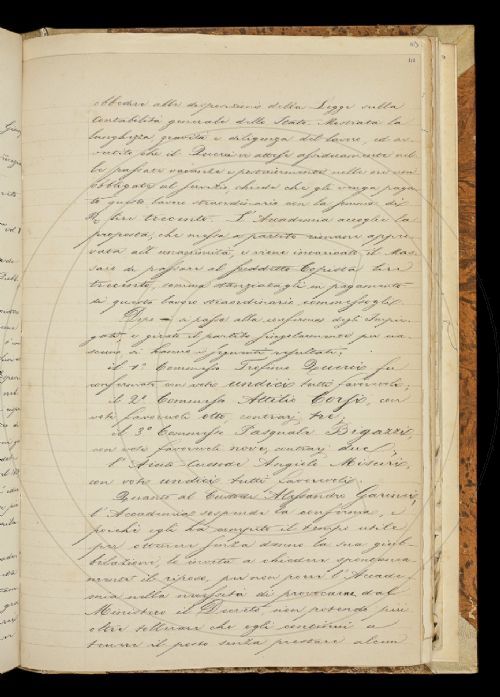 113
obbedire alle disposizioni della Legge sulla
Contabilità generale dello Stato. Mostrata la
lunghezza gravità e diligenza del lavoro, ed av-
vertito che il attese assiduamente nel-
le passate vacanze e posteriormente nelle ore non
obbligate al servizio, chiede che gli venga paga-
to questo lavoro straordinario con la somma di
Lire trecento. L'Accademia accoglie la
proposta, che messa a partito rimane appro-
vata all'unanimità, e viene incaricato il Mas-
saro di passare al suddetto Copista lire
trecento, somma stanziatagli in pagamento
di questo lavoro straordinario commessogli.
Dopo si passa alla conferma degli Impie-
gati, e girato il partito singolarmente per cia-
scuno si hanno i seguenti resultati;
il 1º Commesso Trofimo fu
confermato con voti undici tutti favorevoli;
il 2º Commesso Attilio Corsi, con
voti favorevoli otto, contrarj tre;
il 3º Commesso Pasquale Bigazzi,
con voti favorevoli nove, contrarj due;
l'Aiuto Custode Angiolo
con voti undici tutti favorevoli.
Quanto al Custode Alessandro
l'Accademia sospende la conferma, e
poichè egli ha compito il tempo utile
per ottenere senza danno la sua giub-
bilazione, lo invita a chiedere spontanea-
mente il riposo, per non porre l'Accade-
mia nella necessità di provocarne dal
Ministero il Decreto, non potendo più
oltre tollerare che egli continui a
tenere il posto senza prestare alcun